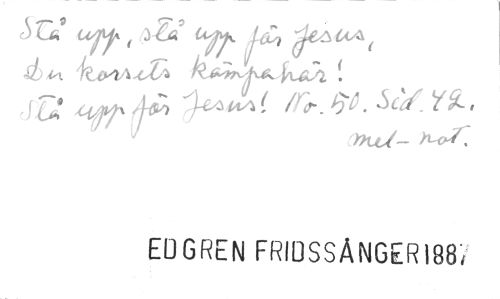 Stå upp, stå upp för Jesus,
Du korsets kämpahär!
Stå upp för Jesus! No. 50. Sid. 42.
mel-not.
EDGREN FRIDSSÅNGER 1887